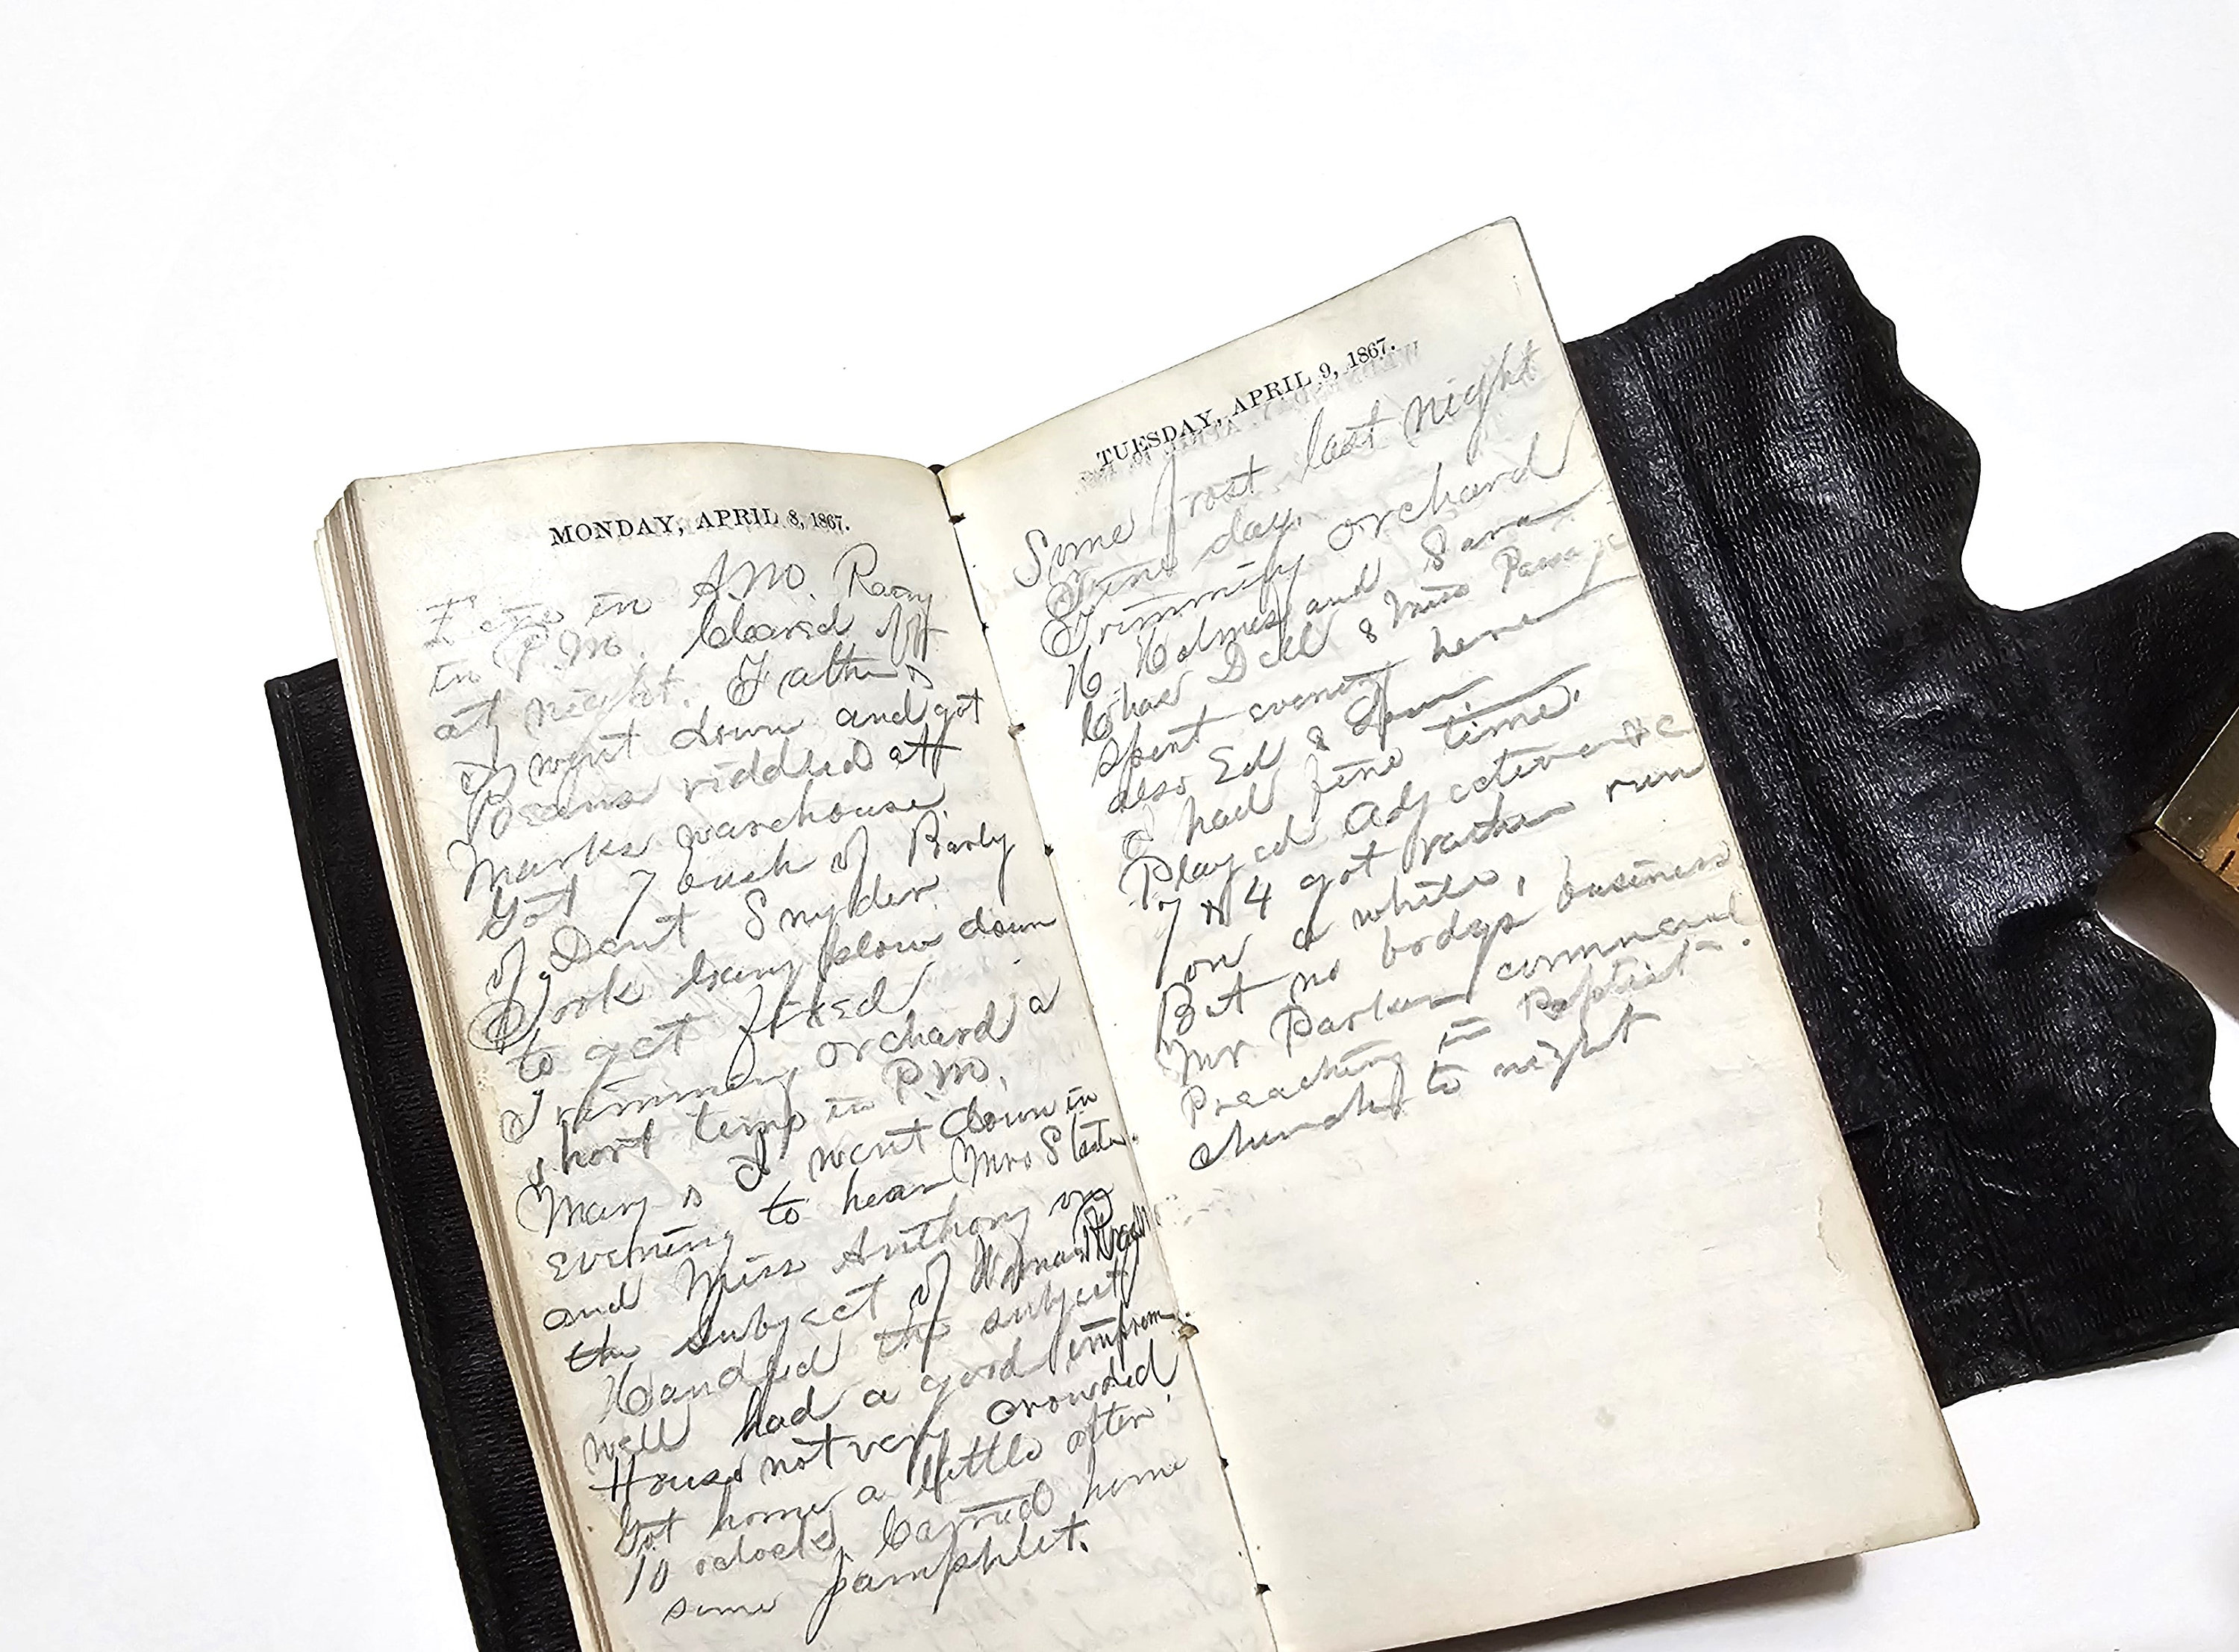 MONDAY, APRIL 8, 1867.
in A.M. Rainy
in P.M. Cleared off
at night. Father &
I went down and got
Beans riddled att
Marks warehouse.
Got 7 bush of Barly
of Dant Snyder.
Took drag plow down
to get fixed
Trimming orchard a
short time in P.M.
Mary & I went down in
evening to hear Mrs
and Miss Anthony on
the subject of Woman
Handled the subject
well had a good
House not very crowded
Got home a little after
10 oclock. Carried home
some pamphlet.
TUESDAY, APRIL 9, 1867.
Some frost last night
Fine day.
Trimming orchard
H Holmes and
Chas Dell & Miss
Spent evening here
also Ed &
I had fine time.
Played Adjectives &c
got rather run
on a while,
But no bodys business
Mr. Parker
Preaching in Baptist
church to night